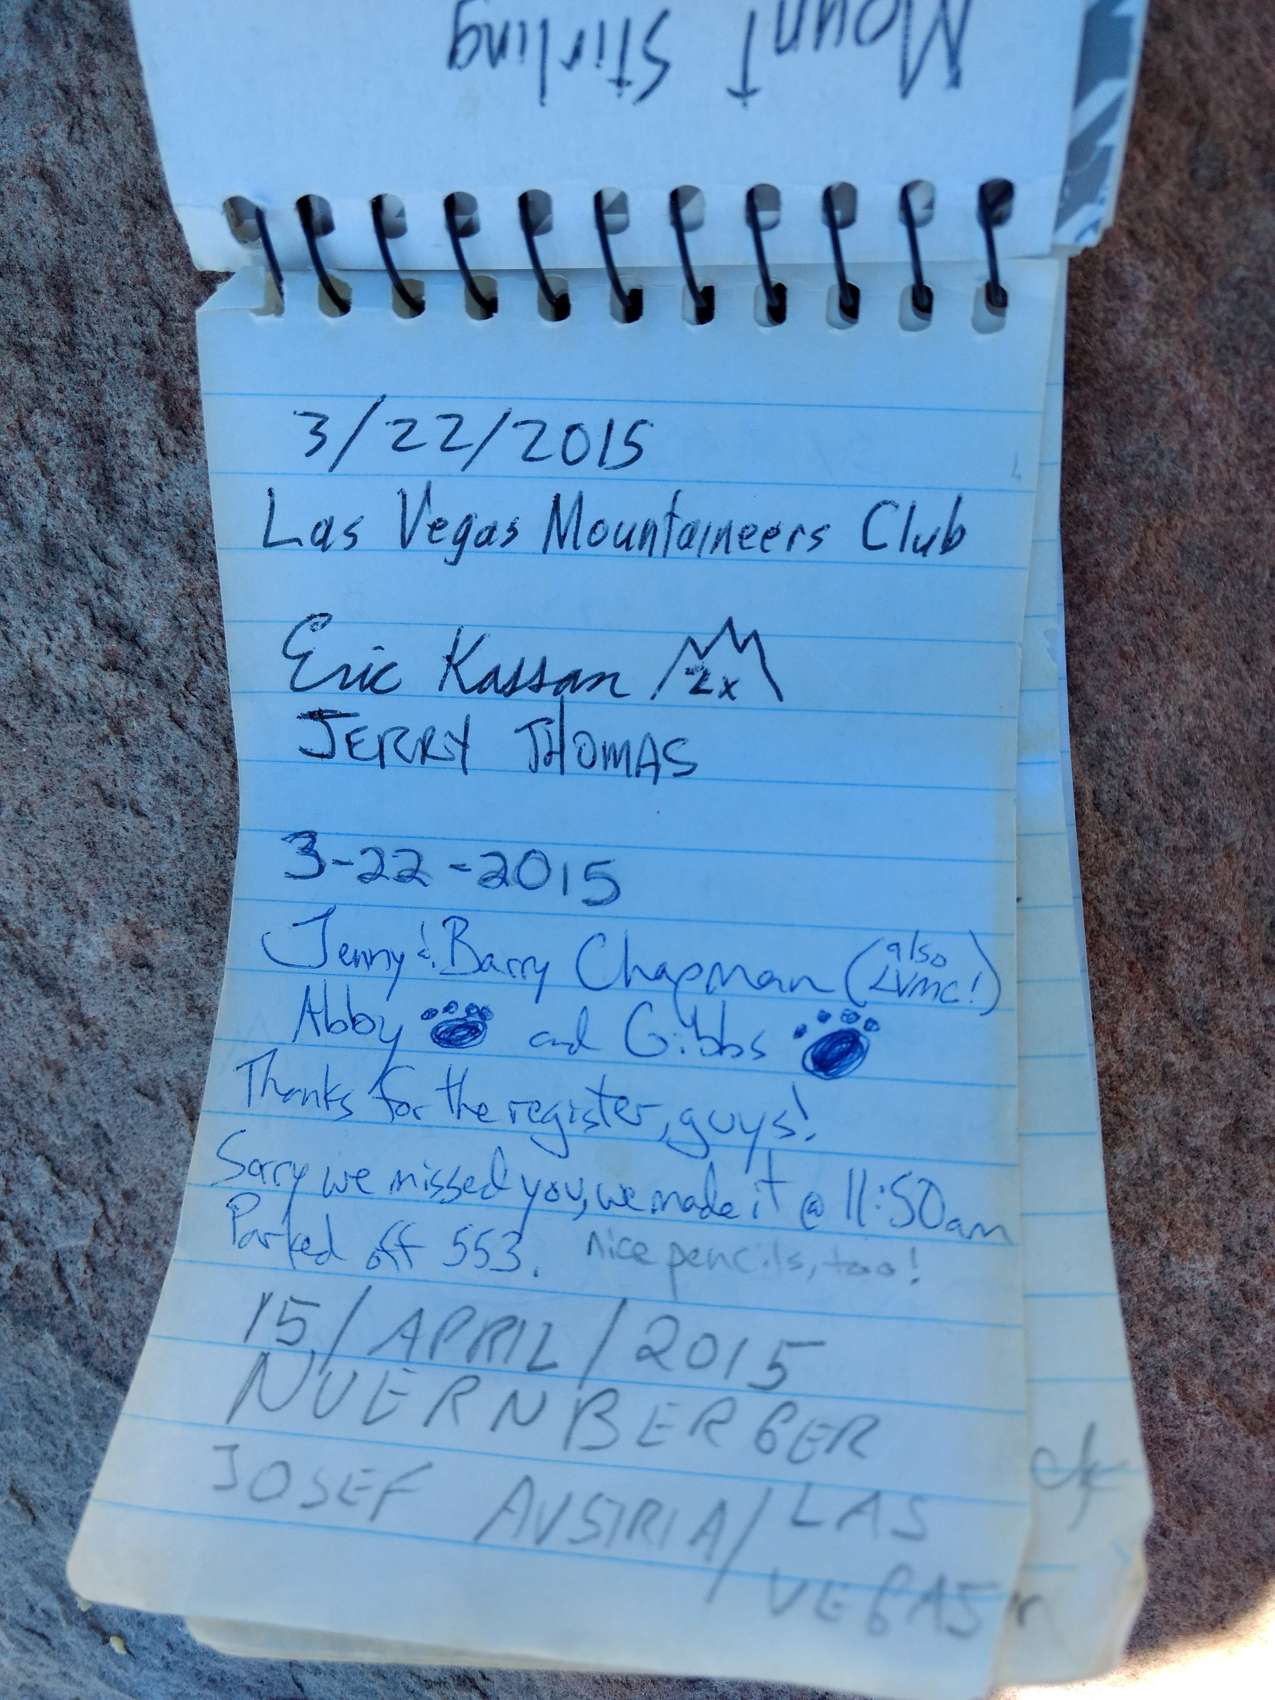 Mount Stirling
3/22/2015
Las Vegas Mountaineers Club
Eric Kassan 2x
JERRY THOMAS
3-22-2015
Jenny & Barry Chapman (also LVMC!)
Abby and Gibbs
Thanks for the register, guys!
Sorry we missed you, we made it @ 11:50am
Parked off 553. Nice pencils, too!
15/APRIL/2015
NUERNBERGER
JOSEF AUSTRIA/LAS
VEGAS